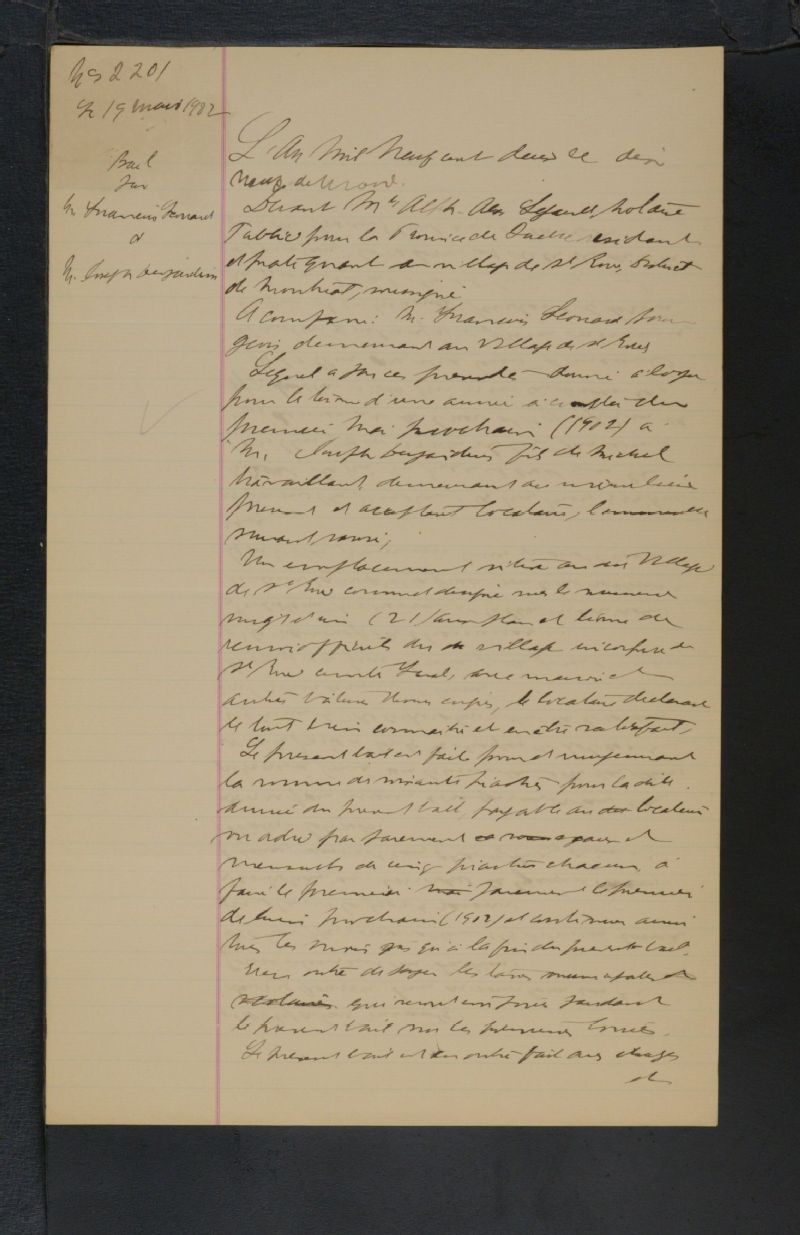 No 2201
Le 19 mars 1902
Bail
par
M. Francois Leonard
à
M. Joseph Desjardins
L'An Mil Neuf cent deux ce dix
neuf de mars.
Devant Mtre notaire
Public pour la Province de Québec residant
et pratiquant au village de St district
de Montréal, soussigné
A comparu: M. Francois Leonard bour
geois demeurant au Village de St
Lequel a par ces presentes donné à loyer
pour le terme d'une année à compter du
premier Mai prochain (1902) à
M. Joseph Desjardins fils de Michel
travaillant, demeurant au même lieu
present et acceptant locataire,
suivant savoir;
Un emplacement situé au dit Village
de St connu et designé sous le numero
vingt et un (21) aux plan et livre de
renvoi officiels du village incorporé de
St comté Laval, avec maison et
autres batisses dessus erigées, le locataire declarant
le tout bien connaitre et en etre satisfait.
Le present bail est fait pour et moyennant
la somme de soixante piastres pour la dite
année du present bail, payable au locateur
ou ordre par paiement et
mensuels de cinq piastres chacun, à
faire le premier paiement le premier
de juin prochain (1902) et continuer ainsi
tous les mois jusqu'à la fin du present bail.
en outre de payer les taxes municipales et
scolaires qui seront imposées pendant
le present bail sur les premisses louées.
Le present bail est en outre fait aux charges
et